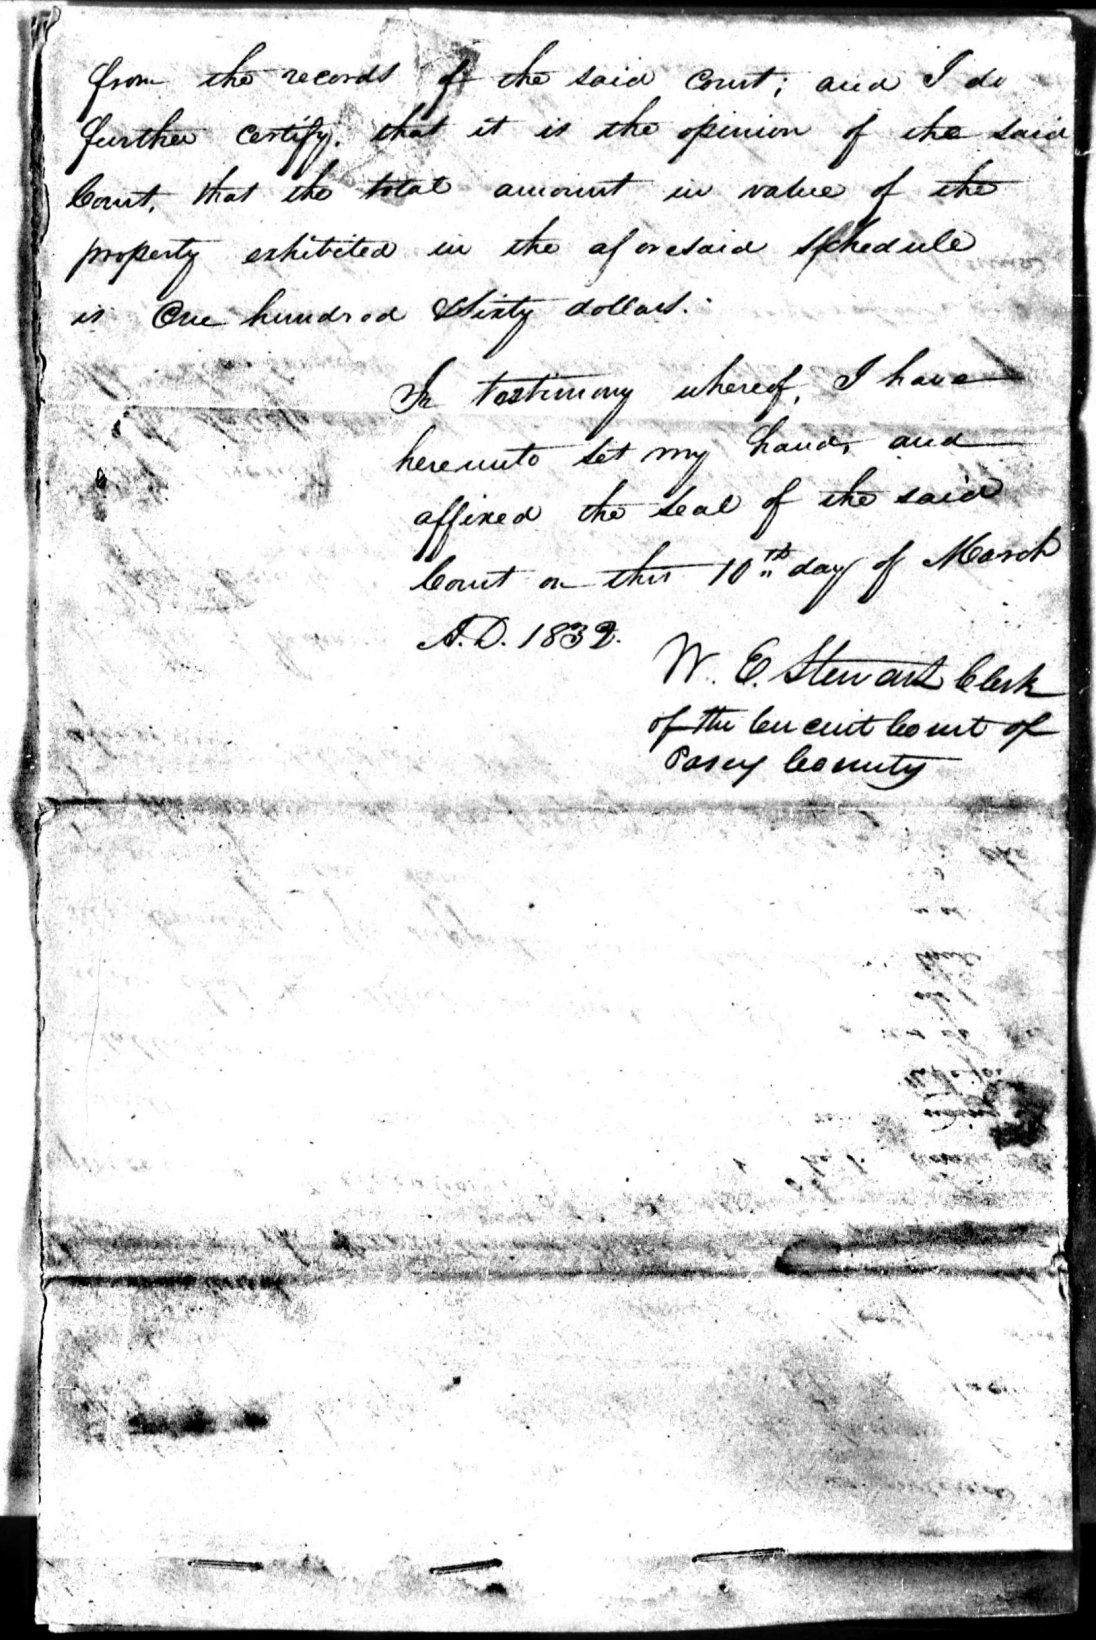 from the records of the said Court; and I do
further certify, that it is the opinion of the said
Court, that the total amount in value of the
property exhibited in the aforesaid Schedule
is One hundred & Sixty dollars.
In testimony whereof, I have
hereunto set my hand, and
affixed the seal of the said
Court on this 10th day of March
A.D. 1832.
W. E. Stewart Clerk
of the Circuit Court of
Posey County